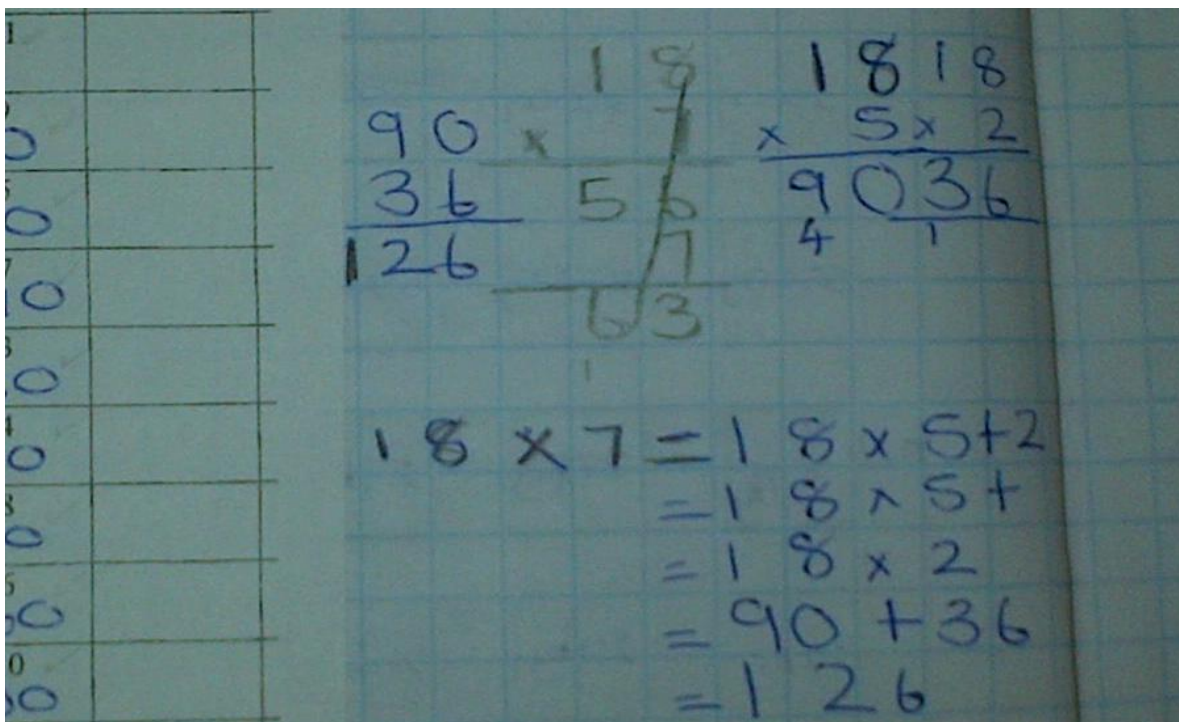 90
36
126
18
× 7
56
7
63
1
18 18
× 5 × 2
90 36
4 1
18 × 7 = 18 × 5+2
= 18 × 5+
= 18 × 2
= 90 + 36
= 126